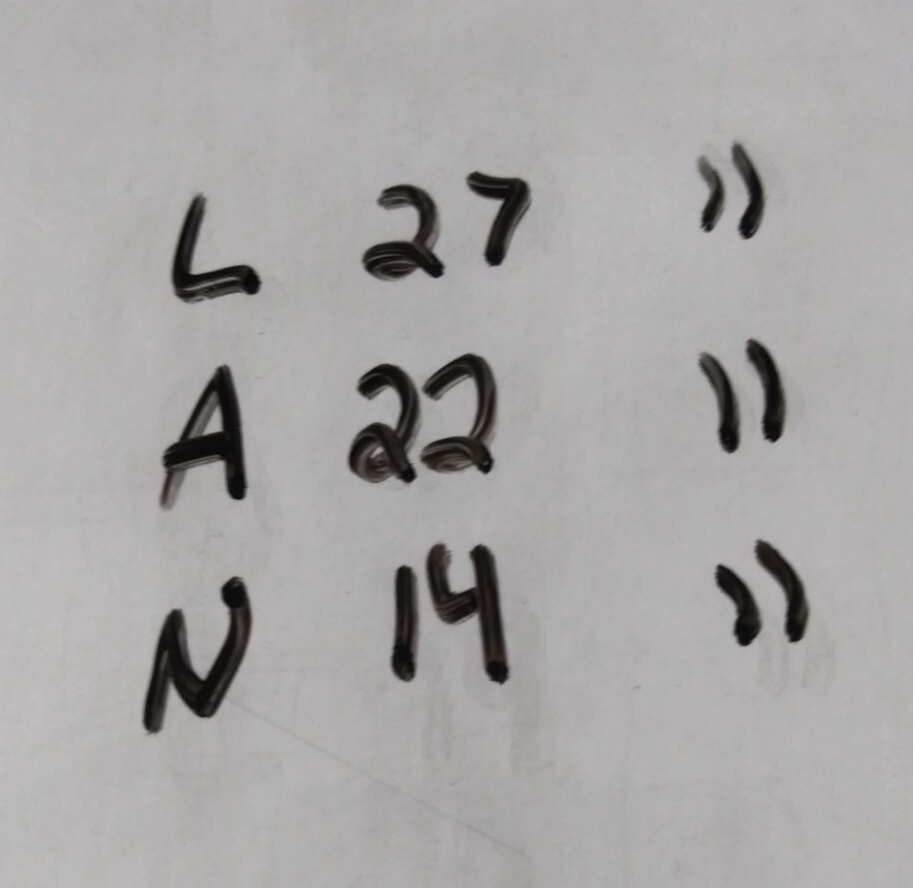 L 27 "
A 22 "
N 14 "